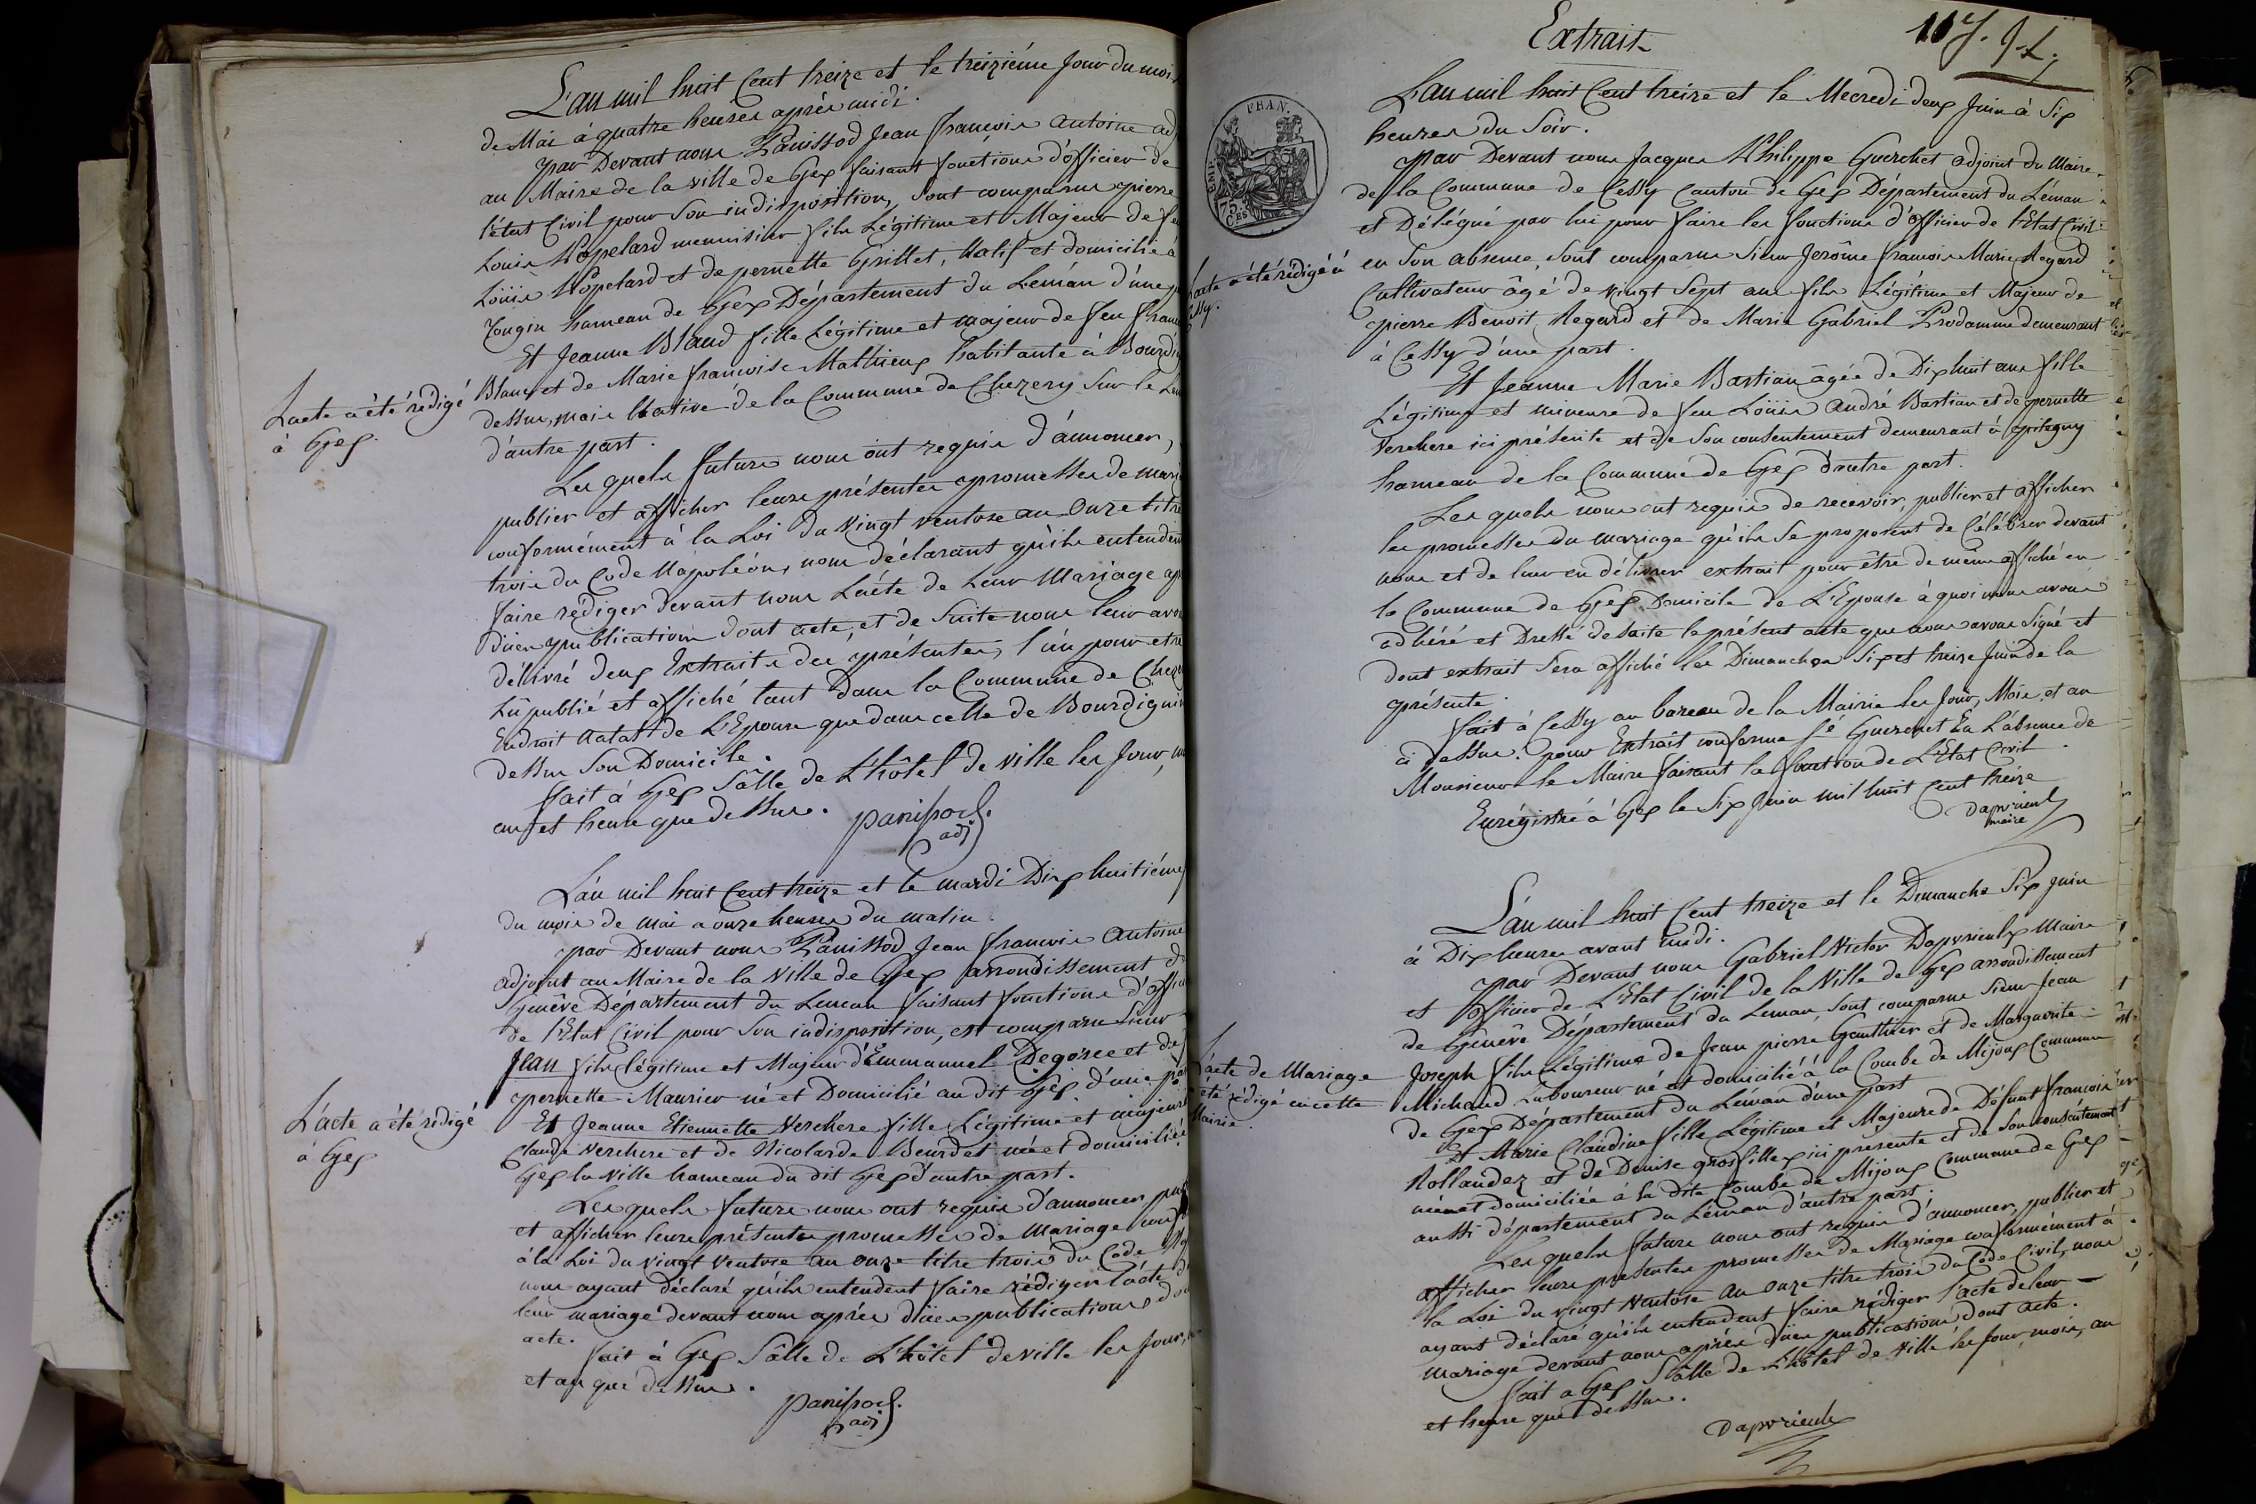 L'an mil huit Cent treize et le treiziéme Jour du mois
de Mai à quatre heures aprés midi.
par Devant nous Panissod Jean françois Antoine adj
au Maire de la ville de Gex faisant fonctions d'officier de
l'état Civil pour Son indisposition, Sont comparus pierre
Louis Popelard menuisier fils Légitime et Majeur de feu
Loüis Popelard et de pernette Grillet, Natif et domicilié à
Tougin hameau de Gex Département du Leman d'une p
Et Jeanne Blanc fille Légitime et majeur de feu franc
Blanc et de Marie françoise Mathieux habitante à Bourdig
dessus, mais Native de la Commune de Chezery Sur le Lem
d'autre part.
Les quels futurs nous ont requis d'annoncer,
publier et afficher leurs présentes promesses de mari
conformément à la Loi du Vingt ventose an Onze titre
trois du Code Napoléon, nous déclarant qu'ils entenden
faire rédiger devant nous L'acte de Leur Mariage ap
dües publications dont acte, et de Suite nous leur avon
délivré deux Extraits des présentes, l'un pour etre
Lû publié et affiché tant dans la Commune de Cheze
Endroit Natal de L'Epouse que dans celle de Bourdigni
dessus Son Domicile.
fait à Gex Sâlle de L'hôtel de Ville les Jour, m
an et heure que dessus.
panissod.
adj
L'acte a été rédigé
à Gex.
L'an mil huit Cent treize et le mardi Dix huitiéme
du mois de Mai a onze heures du matin.
par Devant nous Panissod Jean francois Antoine
adjoint au Maire de la Ville de Gex arrondissement d
Genêve Département du Leman faisant fonctions d'offici
de l'Etat Civil pour Son indisposition, est comparu Sieur
Jean fils légitime et Majeur d'Emmanuel Degorce et de
pernette Maurier né et Domicilié au dit Gex d'une pa
Et Jeanne Etiennette Verchere fille Légitime et majeure
Claude Verchere et de Nicolarde Beurdet née et domiciliée
Gex la Ville hameau du dit Gex d'autre part.
Les quels futurs nous ont requis d'annoncer pu
et afficher leurs présentes promesses de Mariage conf
à la Loi du vingt Ventose an onze titre trois du Code
nous ayant déclaré qu'ils entendent faire rédiger l'acte d
leur mariage devant nous aprés dües publications do
acte.
fait à Gex Sâlle de L'hôtel de ville les Jour,
et an que dessus.
panissod.
adj
L'acte a été rédigé
à Gex
Extrait
117. J.L.
L'an mil huit Cent treize et le Mecredi deux Juin à Six
heures du Soir.
par Devant nous Jacques Philippe Guerchet adjoint du Maire
de la Commune de Cessy Canton de Gex Département du Léman
et Délégué par lui pour faire les fonctions d'officier de l'Etat Civil
en Son absence, Sont comparus Sieur Jerôme francois Marie Regard
Cultivateur âgé de vingt Sept ans fils Légitime et Majeur de
pierre Benoit Regard et de Marie Gabriel Prodamme demeurant
à Cessy d'une part.
Et Jeanne Marie Bastian âgée de Dix huit ans fille
Légitime et mineure de feu Loüis André Bastian et de pernette
Verchere ici présente et de Son consentement demeurant à
hameau de la Commune de Gex d'autre part.
Les quels nous ont requis de recevoir, publier et afficher
les promesses du mariage qu'ils Se proposent de Célébrer devant
nous et de leur en délivrer extrait pour être de même affiché en
la Commune de Gex Domicile de L'Epouse à quoi nous avons
adhéré et Dressé de Suite le présent acte que nous avons Signé et
dont extrait Sera affiché les Dimanches Six et treize Juin de la
présente.
fait à Cessy au bureau de la Mairie les Jour, Mois, et an
ci dessus. pour Extrait conforme Sé Guerchet En L'absence de
Monsieur le Maire faisant la fonction de L'Etat Civil.
Enrégistré à Gex le Six Juin mil huit Cent treize
Daprvieux
maire
FRAN.
EMP.
75
CES
L'acte a été rédigé à
Cessy.
L'an mil huit Cent treize et le Dimanche Six Juin
à Dix heures avant midi.
par Devant nous Gabriel Victor Daprvieux Maire
et Officier de L'Etat Civil de la Ville de Gex arrondissement
de Genêve Département du Leman, Sont comparus Sieur Jean
Joseph fils Légitime de Jean pierre Gauthier et de Marguerite
Michaud Laboureur né et domicilié à la Combe de Mijoux Commune
de Gex Département du Leman d'une part
Et Marie Claudine fille Légitime et Majeure de Défunt françois
Rollandez et de Denise grosfillex ici presente et de Son consentement
née et domiciliée à la dite Combe de Mijoux Commune de Gex
aussi département du Léman d'autre part.
Les quels futurs nous ont requis d'annoncer, publier et
afficher leurs presentes promesses de Mariage conformément à
la Loi du vingt Ventose an onze titre trois du Code Civil, nous
ayant déclaré qu'ils entendent faire rédiger l'acte de leur
mariage devant nous aprés dües publications dont acte.
fait a Gex Sâlle de L'hôtel de Ville les Jour, mois, an
et heure que dessus.
Daprvieux
L'acte de Mariage
été rédigé en cette
Mairie.